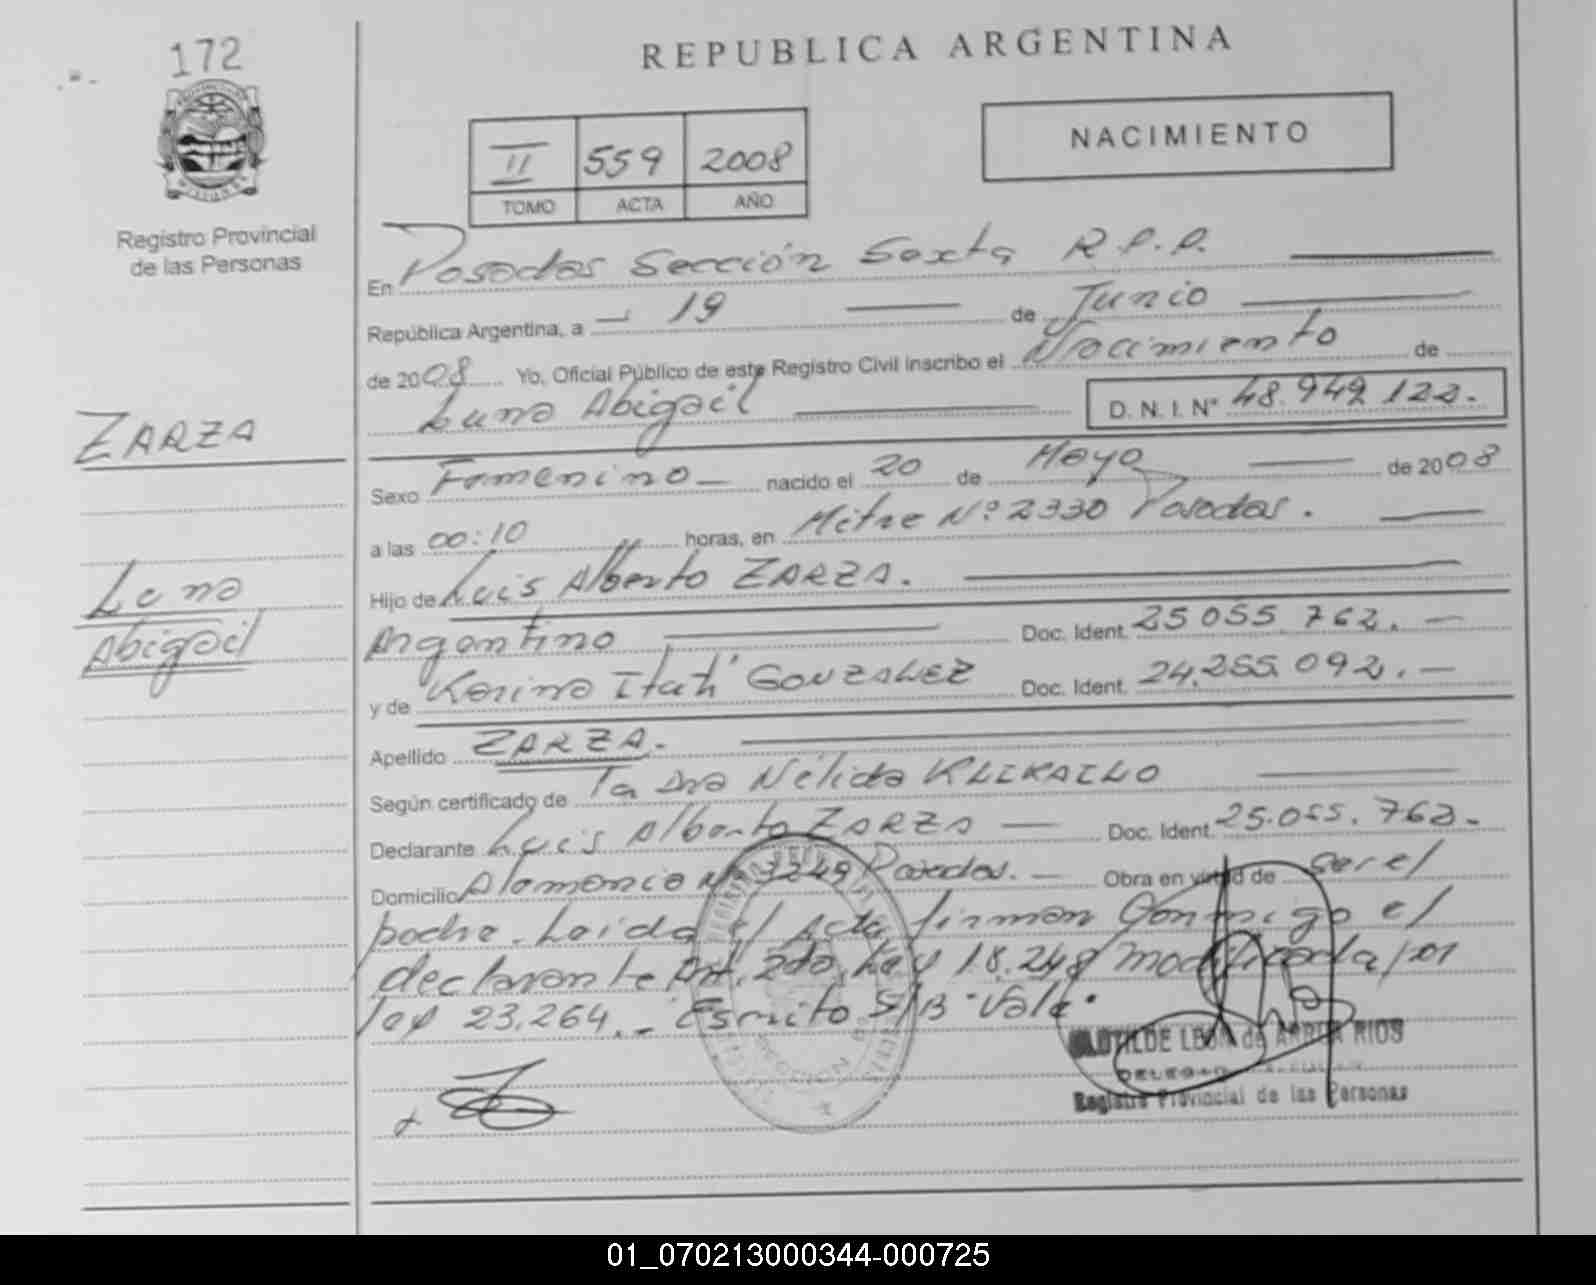 172
REPUBLICA ARGENTINA
NACIMIENTO
II 559 2008
TOMO ACTA AÑO
Registro Provincial
de las Personas
En Posadas Sección Sexta R.P.P.
República Argentina, a 19 de Junio
de 2008 Yo, Oficial Público de este Registro Civil inscribo el Nacimiento de
Luna Abigail D. N. I. Nº 48.949.122.
ZARZA
Sexo Femenino nacido el 20 de Mayo de 2008
a las 00:10 horas, en Mitre Nº 2330 Posadas.
Luna
Abigail
Hijo de Luis Alberto ZARZA.
Argentino Doc. Ident. 25.055.762.
y de Karina Itatí GONZALEZ Doc. Ident. 24.255.092.
Apellido ZARZA.
Según certificado de la Dra Nélida
Declarante Luis Alberto ZARZA Doc. Ident. 25.055.762.
Domicilio Alemania Nº 3249 Posadas. Obra en virtud de ser el
padre. Leida el Acta firman Conmigo el
declarante Art. 2do. Ley 18.248 modificada por
ley 23.264. Escrito S/B "Vale"
CLOTILDE LEON de RIOS
Registro Provincial de las Personas
01_070213000344-000725